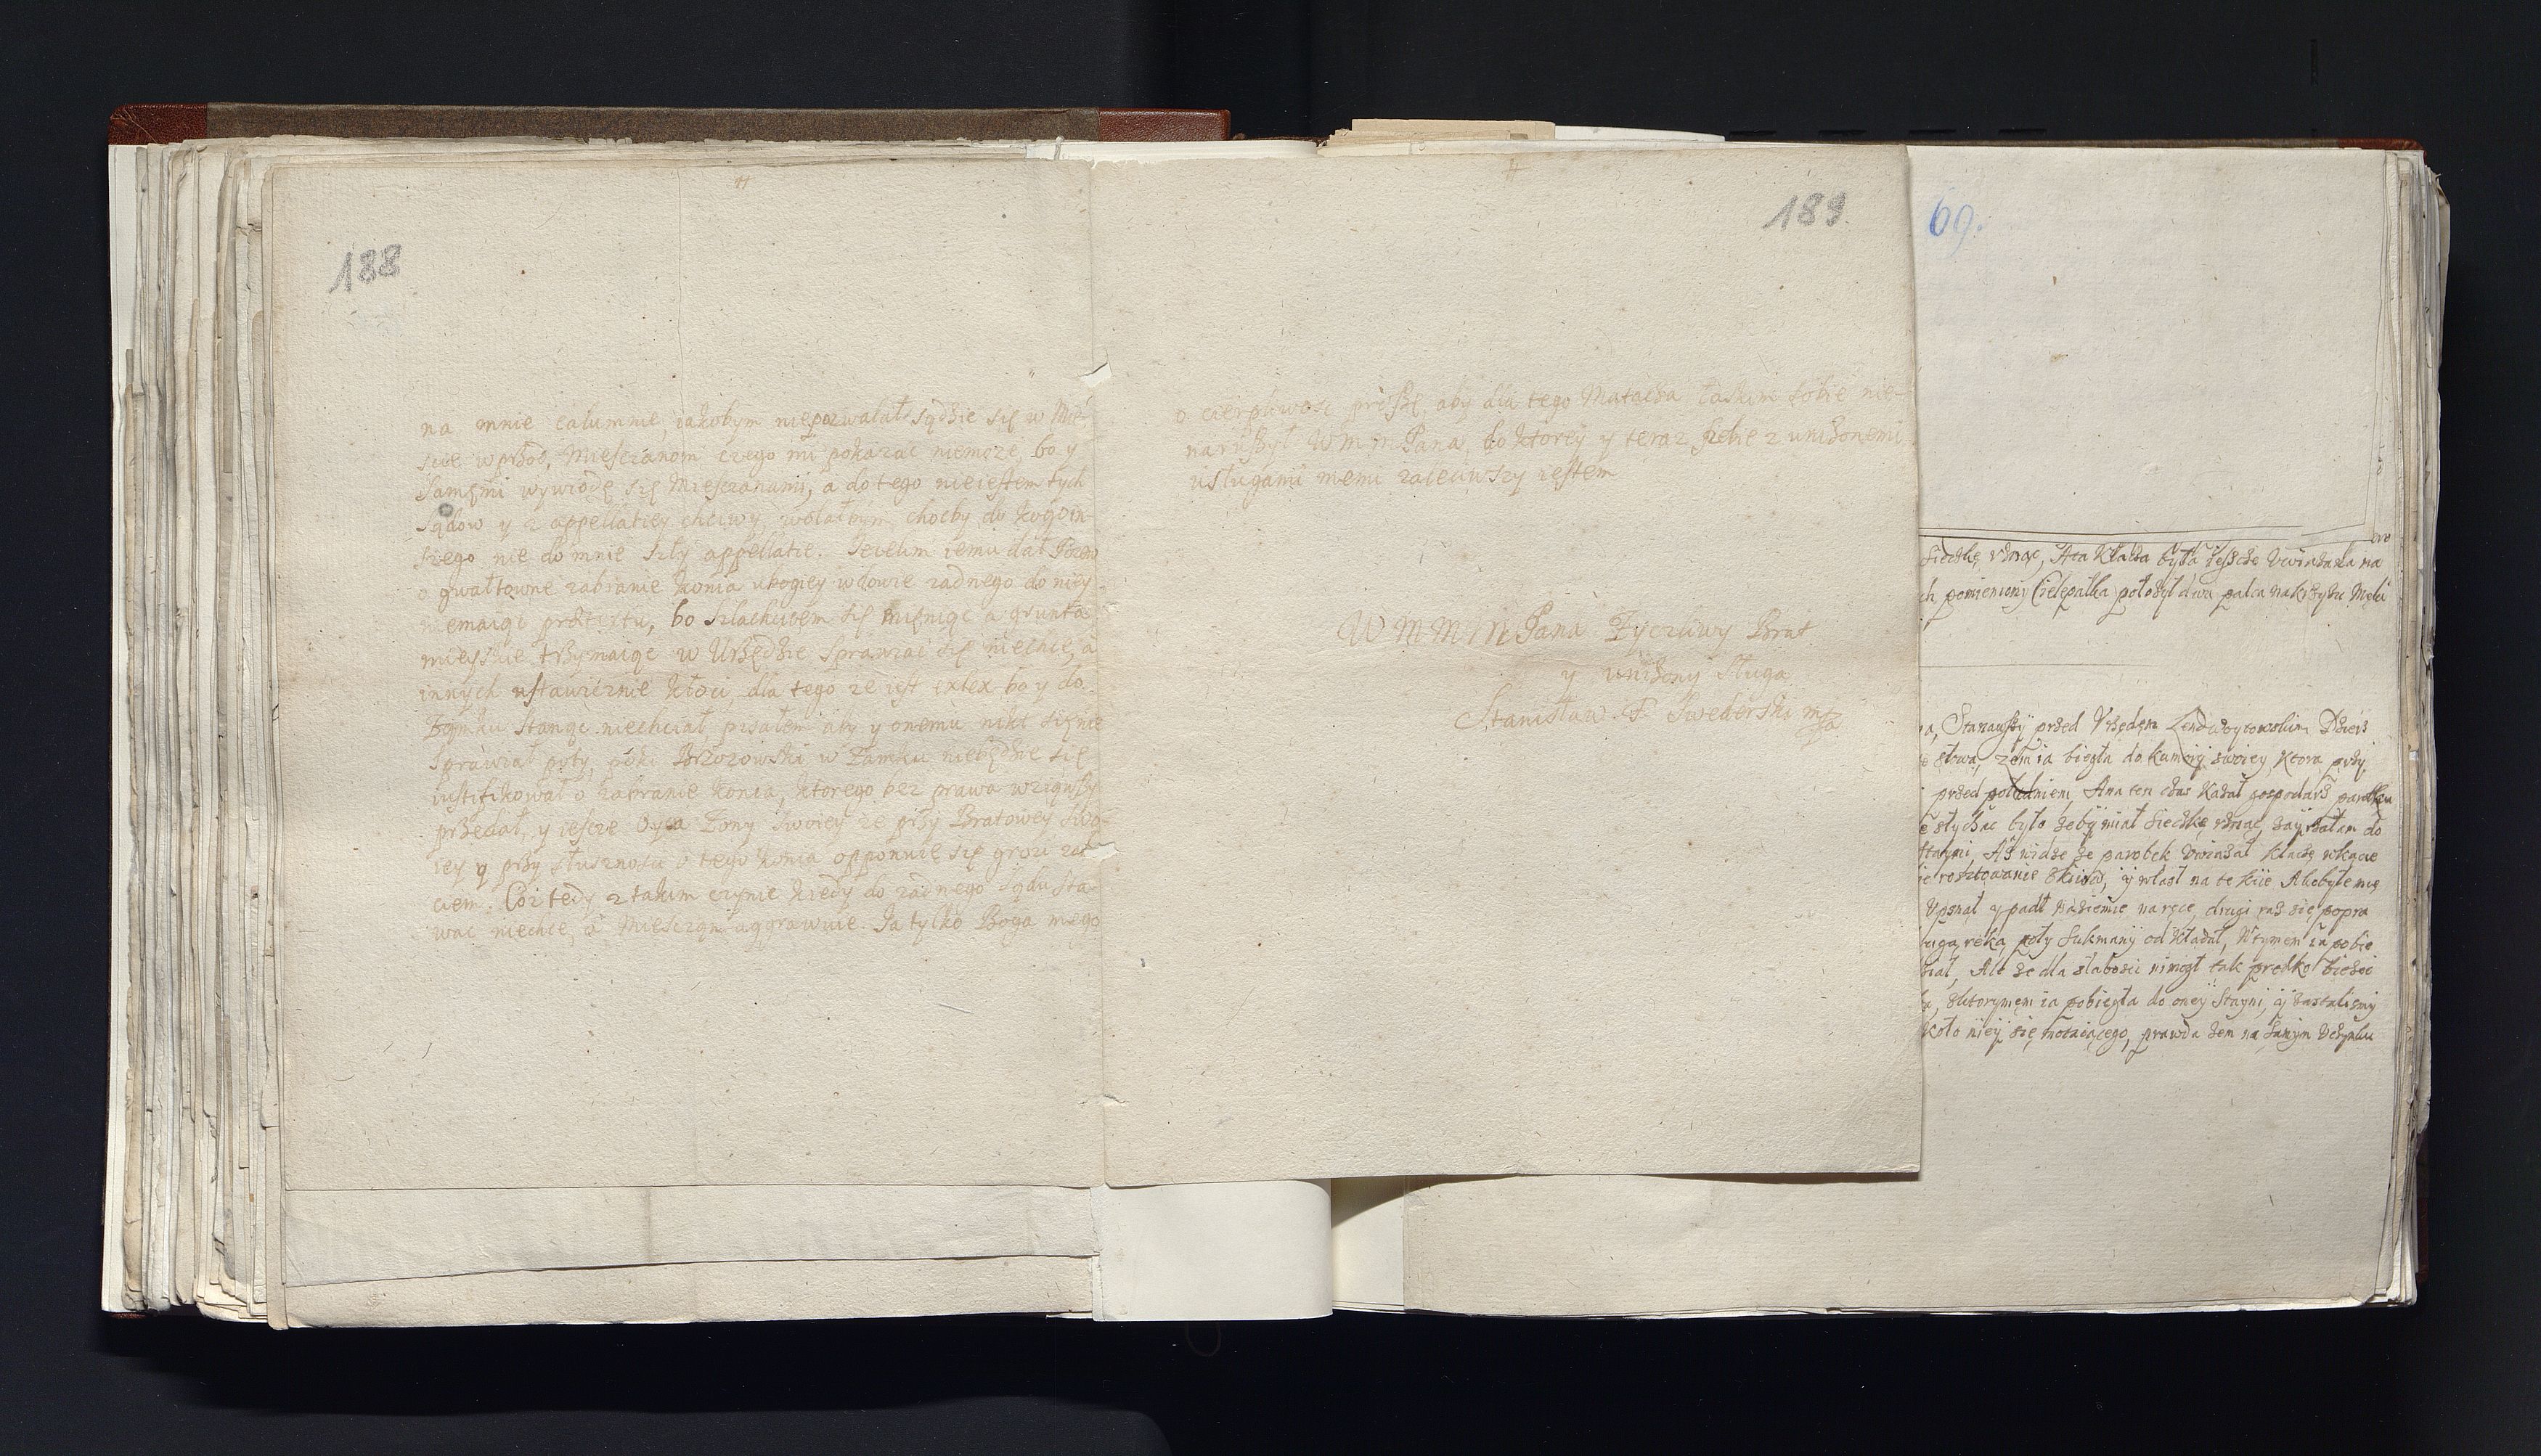 188
na mnie calumnie, iakobym niepozwalał sądzic się w Mie-
scie wprzod, Miesczanom czego mi pokazac niemoze, bo y
samemi wywiodę się Miesczanami, a do tego nieiestem tych
sądow y z appellatiey chciwy, wolałbym chocby do kogoin-
szego nie do mnie szły appellatie. Jezelim iemu dał Pozew
o gwałtowne zabranie konia ubogiey wdowie zadnego do niey
niemaiąc praetextu, bo szlachcicem się mieniąc a grunta
mieyskie trzymaiąc w Urzędzie sprawiac się niechce, a
innych ustawicznie kłoci, dla tego ze iest exlex bo y do
Zamku stanąc niechciał pisałem aby y onemu nikt się nie
sprawiał poty, poki Brzozowski w Zamku niebędzie się
iustifikował o zabranie konia, ktorego bez prawa wziąwszy
przedał, y iescze Oyca Zony swoiey ze przy Bratowey swo-
iey y przy słusznosci o tego konia opponuie się grozi zab
ciem. Coz tedy z takim czynic kiedy do zadnego sądu sta-
wac niechce, a Mieszczan aggrawuie. Ja tylko Boga mego
189
o cierpliwosc proszę, aby dla tego Matacza łaskim sobie nie-
naruszył WM m Pana, do ktorey y teraz siebie z unizonemi
usługami memi zaleciwszy iestem
W M M m Pana Zyczliwy Brat
y unizony Sługa
Stanisław F. Swederski mp
69.
sieczkę rznąc, Ana Klacza była iescze Uwiazana na
ch pomieniony Cielepałka połozył dwa palca nakrzyzu Męki
na, Stanąwszy przed Urzędem
stwa, zem ia biegła do kumory swoiey, ktora przy
przed południem, Ana ten czas kazał gospodarz parobku
słychac było zeby miał sieczkę rznąc, zayrzałam do
stayni, Asz widze ze parobek Uwiązał klaczę wkącie
, y wlazł na te kiie Akobyle mę
Upsnał y padł naziemie naręce, drugi raz się popra
ugą ręką poły sukmany odkładał, Wtymem ia pobie
Ale ze dla słabosci nimogł tak prędko biezec
, zktorymem ia pobiegła do oney Stayni, y zastalismy
koło niey się motaiącego, prawda zem na samym Uczynku